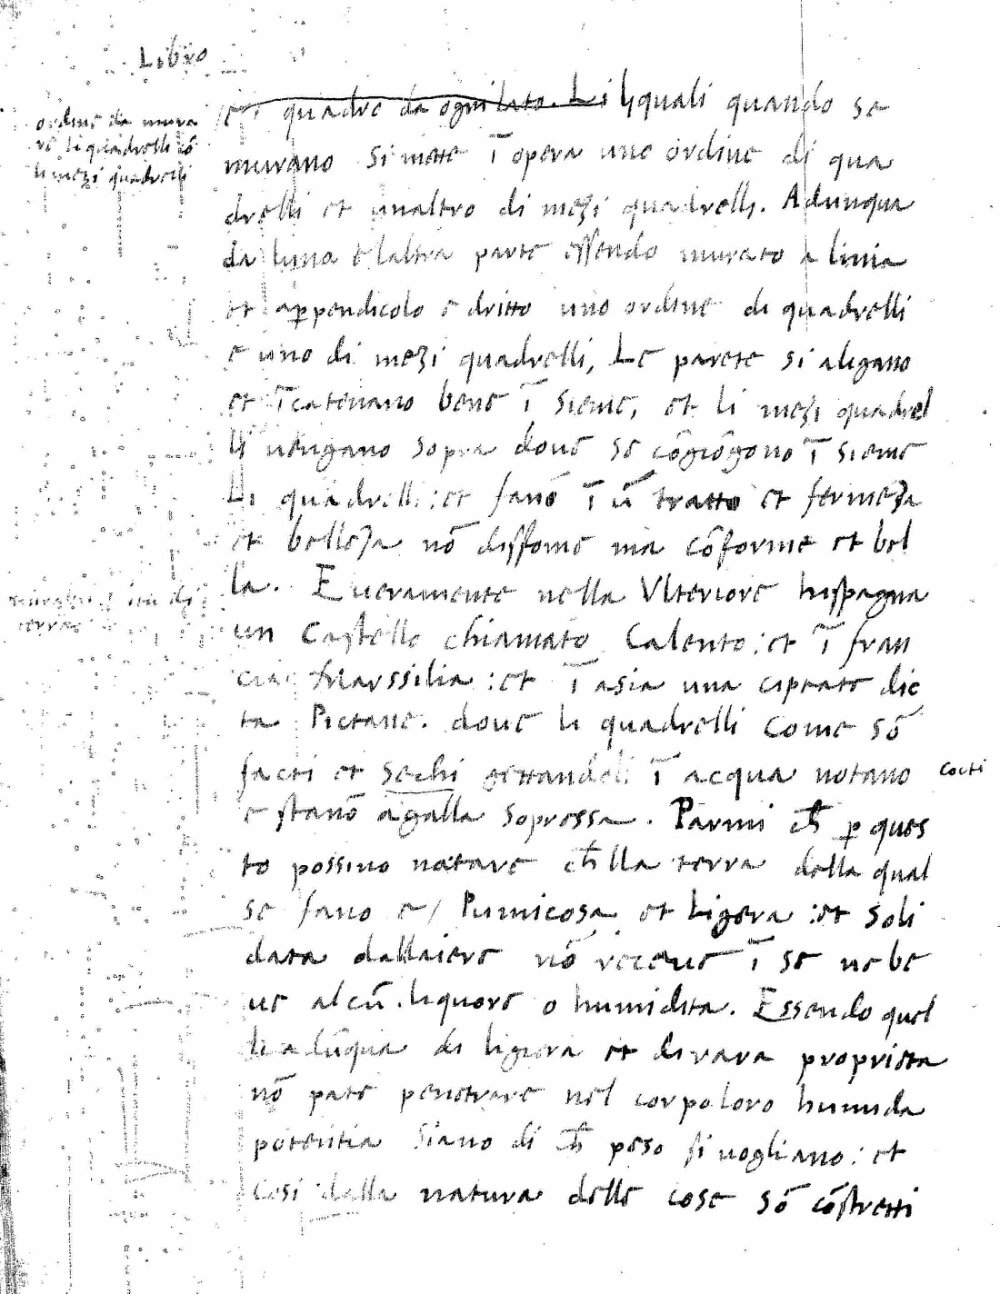 Libro
ordine da mura
re li quadrelli cõ
li mezi quadrelli
e i quadre da ogni lato. Li qquali quando se
murano si mette ĩ opera uno ordine di qua
drelli et unaltro di mezi quadrelli. Adunqua
da luna e laltra parte essendo murato a linia
et appendicolo e dritto uno ordine di quadrelli
e uno di mezi quadrelli, Le parete si aligano
et ĩcatenano bene ĩ sieme, et li mezi quadrel
li uengano sopra doue se cõgiõgono ĩ sieme
Li quadrelli : et fanõ ĩ ũ tratto et fermeza
et belleza nõ diffome ma cõforme et bel
la. E ueramente nella Vlteriore hispagna
un Castello chiamato Calento : et ĩ fran
cia Marssilia : et ĩ asia una ciptate dic
ta Pictane. doue li quadrelli Come sõ
facti et sechi gettandoli ĩ acqua notano
cocti
e stanõ agalla sopressa. Parmi ch̃ p ques
to possino notare ch̃ lla terra della qual
se fano e/ Pumicosa et Ligera : et soli
data dallaiere nõ receue ĩ se ne be
ue alcũ. liquore o humidita. Essendo quel
li adũqua di ligiera et di rara proprieta
nõ pate penetrare nel corpo loro humida
potentia siano di ch̃ peso si uogliano : et
Cosi dalla natura delle cose sõ cõstretti